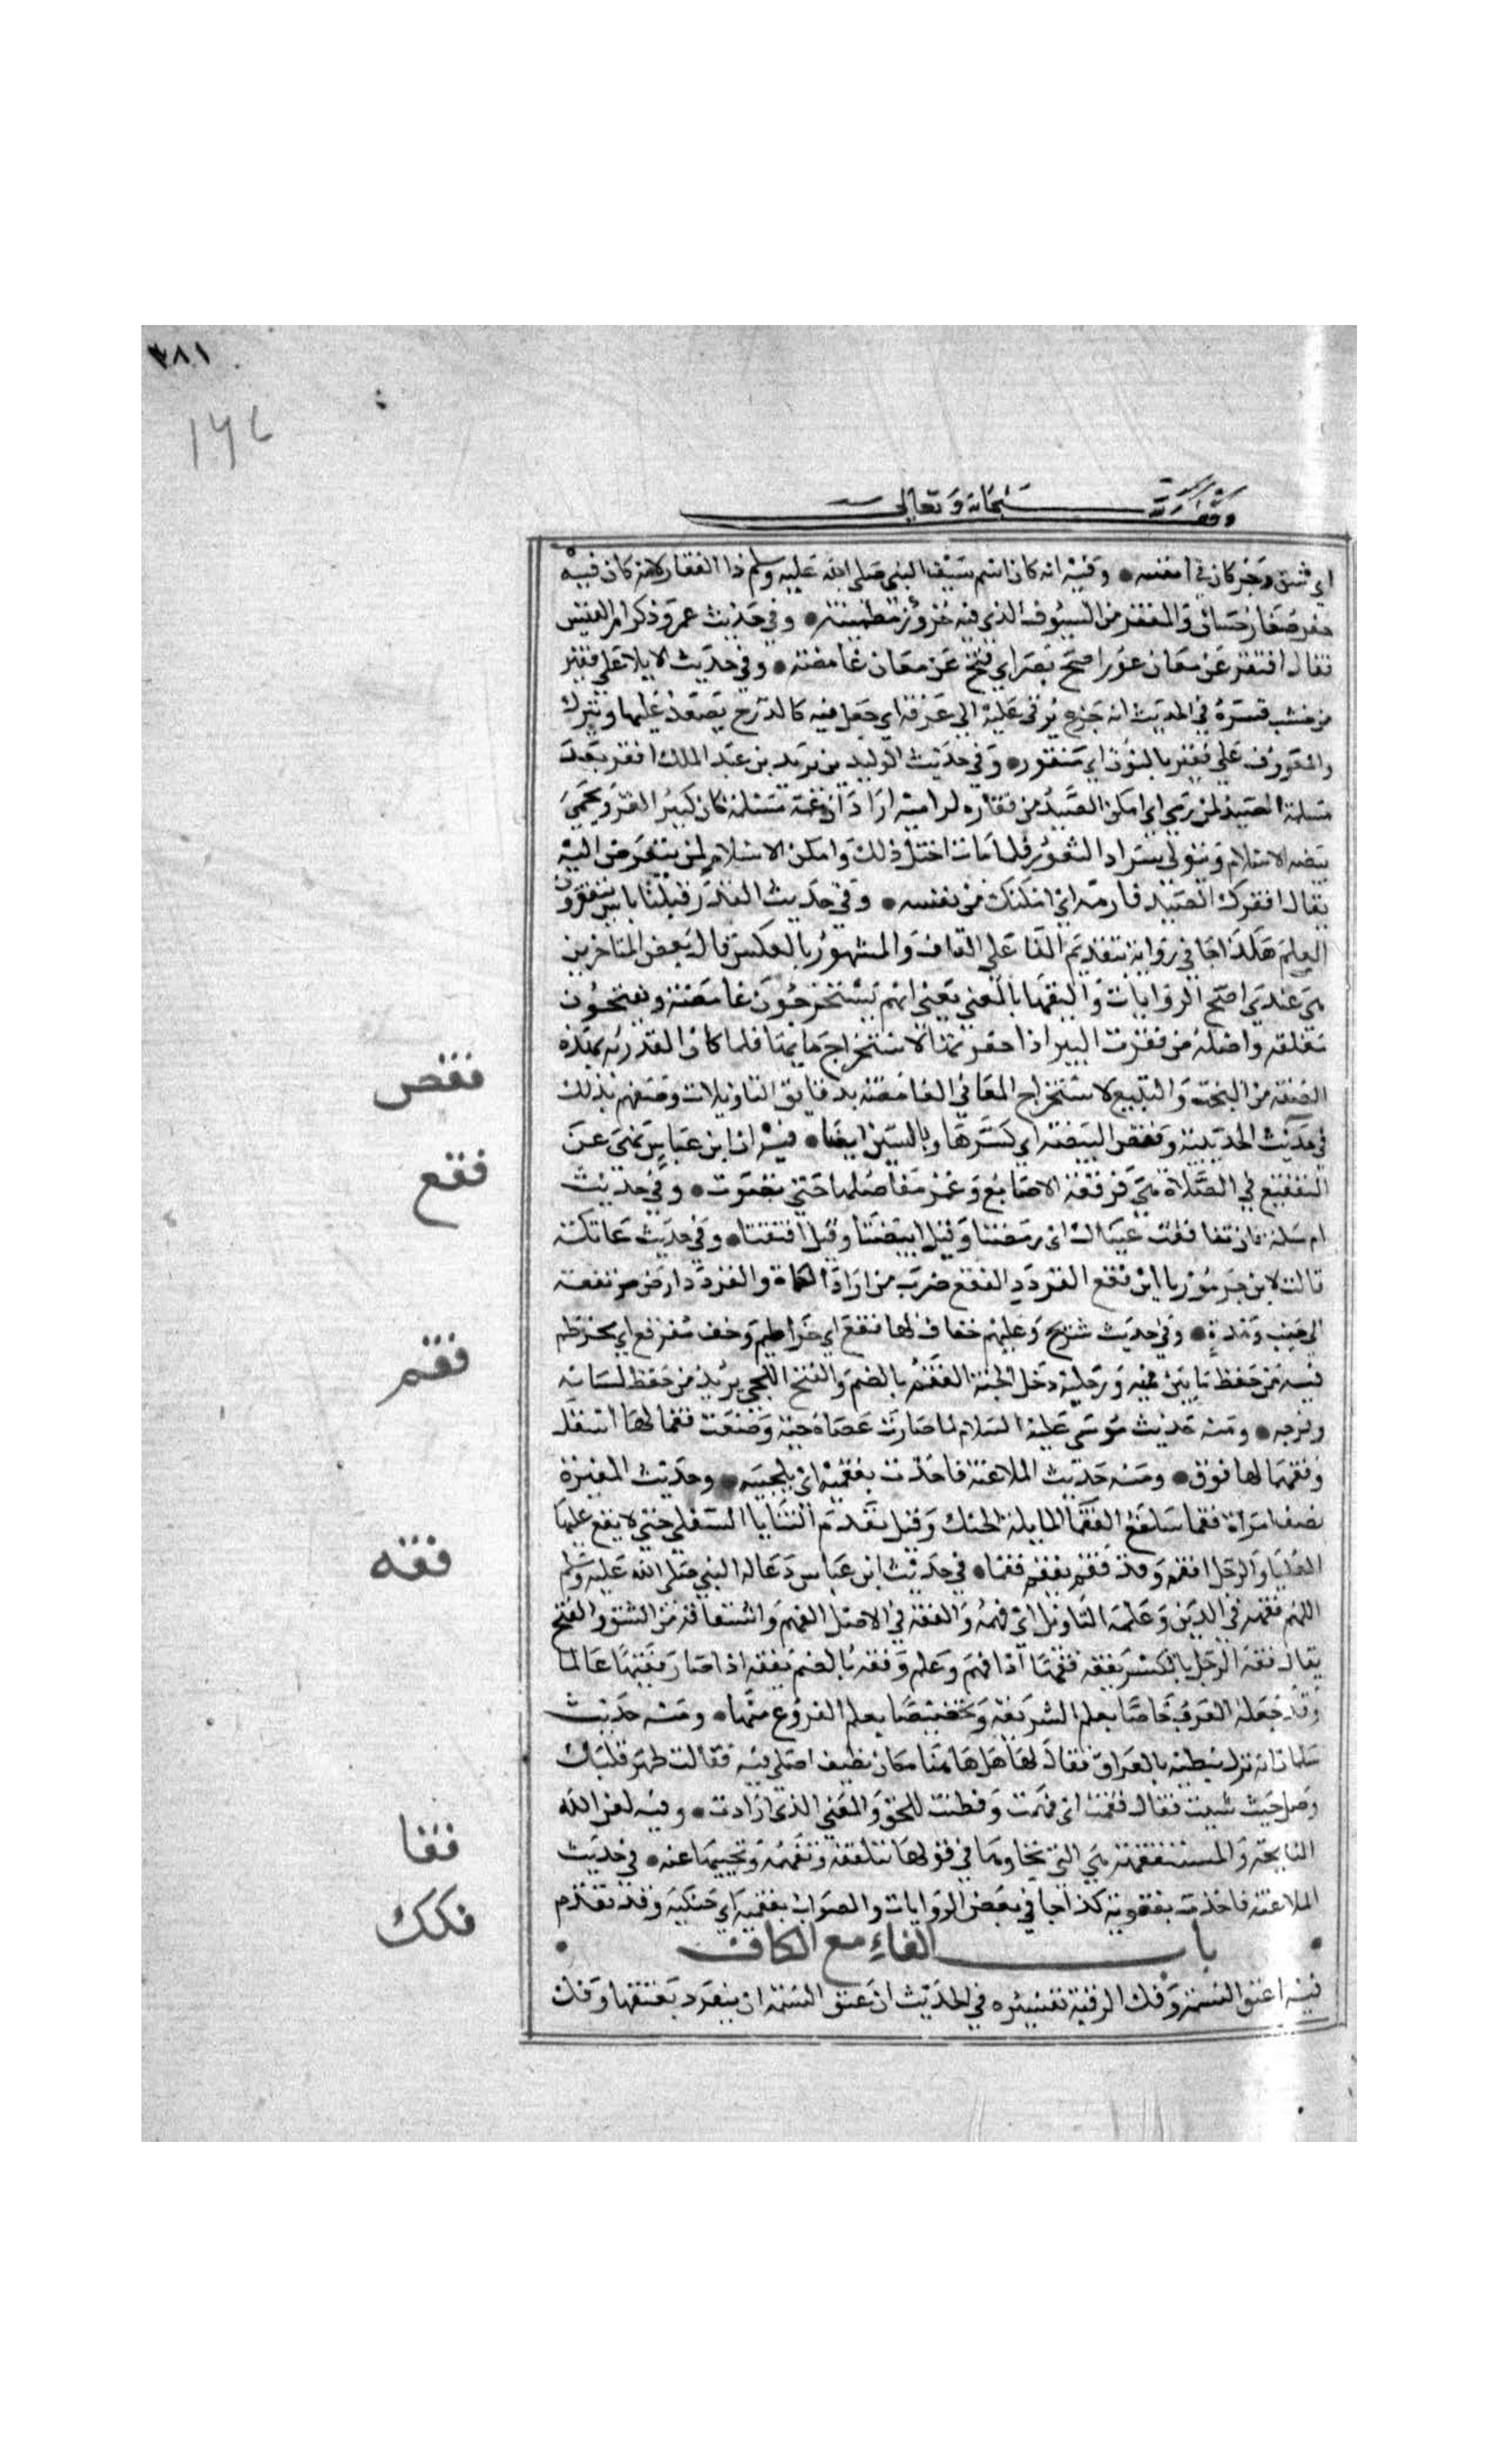 ٣٨١
وقف لله سبحانه وتعالى
اي شق وجز كان في انفسه ۞ وفيه انه كان اسم سيف النبي صلى الله عليه وسلم ذا الفقار لانه كان فيه
حفر صغار حسان والمفقر من السيوف الذي فيه حزوز مطمئنة ۞ وفي حديث عمر وذكر امر القيس
فقال افتقر عن معان عور اصح بصر اي فتح عن معان غامضة ۞ وفي حديث الايلا على فقير
من خشب فسره في الحديث انه جذع يرقى عليه الى غرفة اي جعل فيه كالدرج يصعد عليها وينزل
والمعروف على نقير بالنون اي منقور ۞ وفي حديث الوليد بن يزيد بن عبد الملك افقر بعد
مسلمة الصيد لمن رمى اي امكن الصيد من فقاره لراميه اراد ان عمه مسلمة كان كبير الغزو يحمي
بيضه الاسلام ويتولى سداد الثغور فلما مات اختل ذلك وامكن الاسلام لمن يتعرض اليه
يقال افقرك الصيد فارمه اي امكنك من نفسه ۞ وفي حديث القدر قبلنا ناس يتفقرون
العلم هكذا جا في رواية بتقديم الفا على القاف والمشهور بالعكس قال بعض المتاخرين
هي عندي اصح الروايات واليقها بالمعنى يعني انهم يستخرجون غامضه ويفتحون
مغلقه واصله من فقرت البير اذا حفرتها لاستخراج مايها فلما كان القدرية بهذه
الصفة من البحث والتتبع لاستخراج المعاني الغامضة بدقايق التاويلات وصفهم بذلك
فقص
في حديث الحديبية وفقص البيضة اي كسرها وبالسين ايضا ۞ فيه ان ابن عباس نهى عن
فقع
التفقيع في الصلاة هي فرقعة الاصابع وغمز مفاصلها حتى تصوت ۞ وفي حديث
ام سلمة فان تفاقعت عيناك اي رمصتا وقيل ابيضتا وقيل انشقتا ۞ وفي حديث عاتكة
قالت لابن جرموز يا ابن فقع القردد الفقع ضرب من اردا الكماة والقردد ارض مرتفعة
الى جنب وهدة ۞ وفي حديث شريح وعليهم خفاف لها فقع اي خراطيم وخف مفقع اي مخرطم
فقم
فيه من حفظ ما بين فقميه ورجليه دخل الجنة الفقم بالضم والفتح اللحي يريد من حفظ لسانه
وفرجه ۞ ومنه حديث موسى عليه السلام لما صارت عصاه حية وضعت فقما لها اسفل
وفقما لها فوق ۞ ومنه حديث الملاعنة فاخذت بفقميه اي بلحييه ۞ وحديث المغيرة
يصف امراة فقما سلفع الفقما المايلة الحنك وقيل تقدم الثنايا السفلى حتى لا يقع عليها
فقه
العليا والرجل افقم وقد فقم يفقم فقما ۞ في حديث ابن عباس دعا له النبي صلى الله عليه وسلم
اللهم فقهه في الدين وعلمه التاويل اي فهمه والفقه في الاصل الفهم واشتقاقه من الشق والفتح
يقال فقه الرجل بالكسر يفقه فقها اذا فهم وعلم وفقه بالضم يفقه اذا صار فقيها عالما
وقد جعله العرف خاصا بعلم الشريعة وتخصيصا بعلم الفروع منها ۞ ومنه حديث
سلمان انه نزل نبطية بالعراق فقال لها هل هاهنا مكان نظيف اصلي فيه فقالت طهر قلبك
وصل حيث شيت فقال فقهت اي فهمت وفطنت للحق والمعنى الذي ارادت ۞ وفيه لعن الله
فقا
النايحة والمستفقهة هي التي تجاوبها في قولها تتلقفه وتفهمه وتجيبها عنه ۞ في حديث
الملاعنة فاخذت بفقويه كذا جا في بعض الروايات والصواب بفقميه اي حنكيه وقد تقدم
باب الفاء مع الكاف
فكك
فيه اعتق النسمة وفك الرقبة تفسيره في الحديث ان عتق النسمة ان ينفرد بعتقها وفك